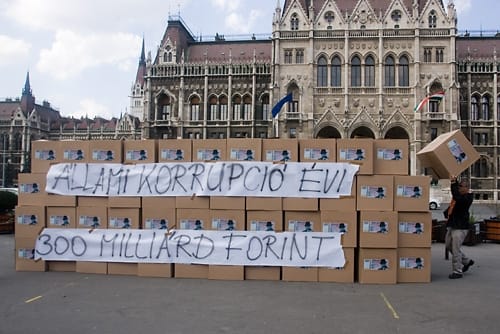 ÁLLAMI KORRUPCIÓ ÉVI
300 MILLIÁRD FORINT